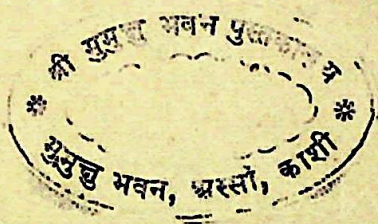 श्री मुमुक्षु भवन पुस्तकालय
मुमुक्षु भवन, अस्सी, काशी